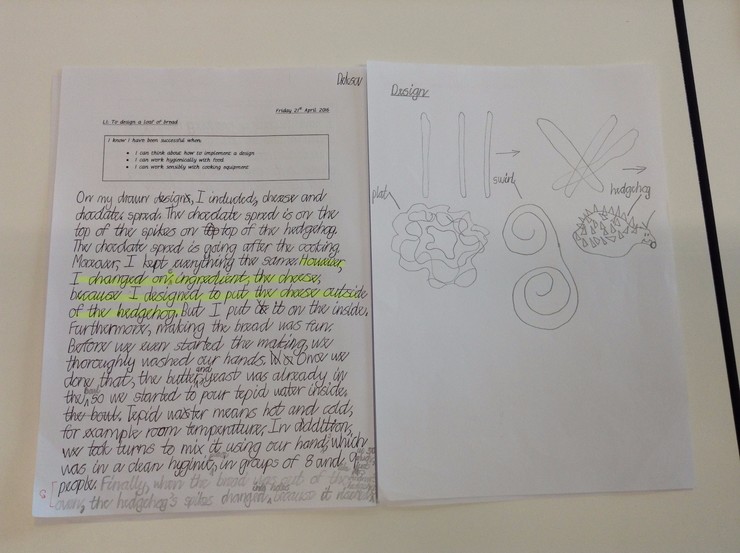 Friday 21st April 2016
LI: To design a loaf of bread
I know I have been successful when:
I can think about how to implement a design
I can work hygienically with food
I can work sensibly with cooking equipment
On my drawn designs, I included, cheese and
chodolate spread. The chocolate spread is on the
top of the spikes on top of the hedgehog.
The chocolate spread is going after the cooking.
Moreover, I kept everything the same. However,
I changed one ingredient, the cheese,
because I designed to put the cheese outside
of the hedgehog. But I put it on the inside.
Furthermore, making the bread was fun.
Before we even started the making, we
thoroughly washed our hands. Once we
done that, the butter and yeast was already in
the bowl, so we started to pour tepid water inside
the bowl. Tepid waster means hot and cold,
for example room temperature. In dddition,
we took turns to mix it using our hand, which
was in a clean hyginic, in groups of 8 and 9
people. Finally, when the bread was out of the
oven, the hedgehog's spikes changed into holes because it
Design
plat
swirl
hedgehog